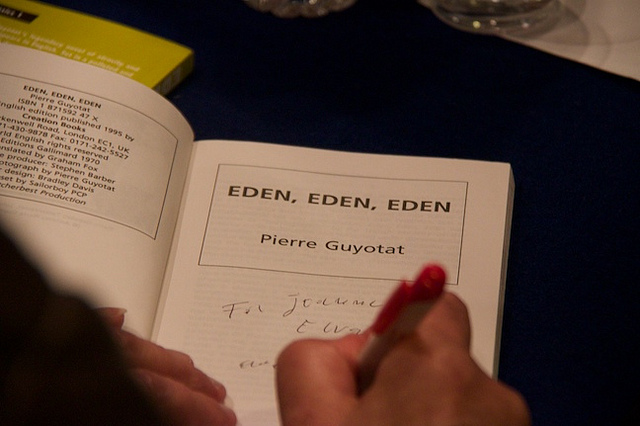 EDEN, EDEN, EDEN
Pierre Guyotat
ISBN 1 871592 47 X
English edition published 1995 by
Creation Books
rkenwell Road, London EC1, UK
71-430-9878 Fax: 0171-242-5527
rld English rights reserved
Editions Gallimard 1970
nslated by Graham Fox
e producer: Stephen Barber
otograph by Pierre Guyotat
design: Bradley Davis
set by Sailorboy PCP
cherbest Production
EDEN, EDEN, EDEN
Pierre Guyotat
For Joanne